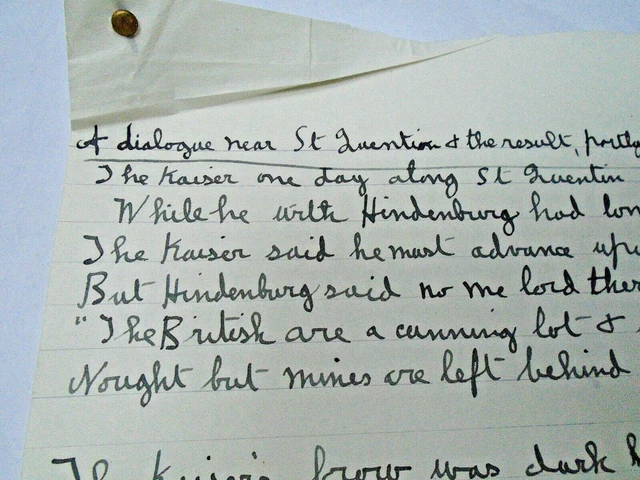 A dialogue near St Quentin & the result, partly
The Kaiser one day along St Quentin
While he with Hindenburg had
The Kaiser said he must advance
But Hindenburg said no me lord
"The British are a cunning lot &
Nought but mines are left behind
The Kaiser's brow was dark